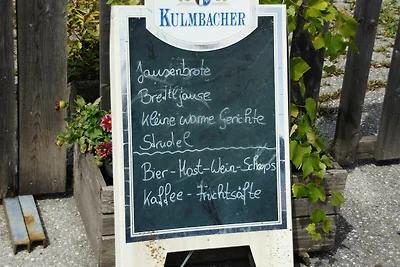 KULMBACHER
Jausenbrote
Brettljause
Kleine warme Gerichte
Strudel
Bier-Most-Wein-Schnaps
Kaffee - Fruchtsäfte